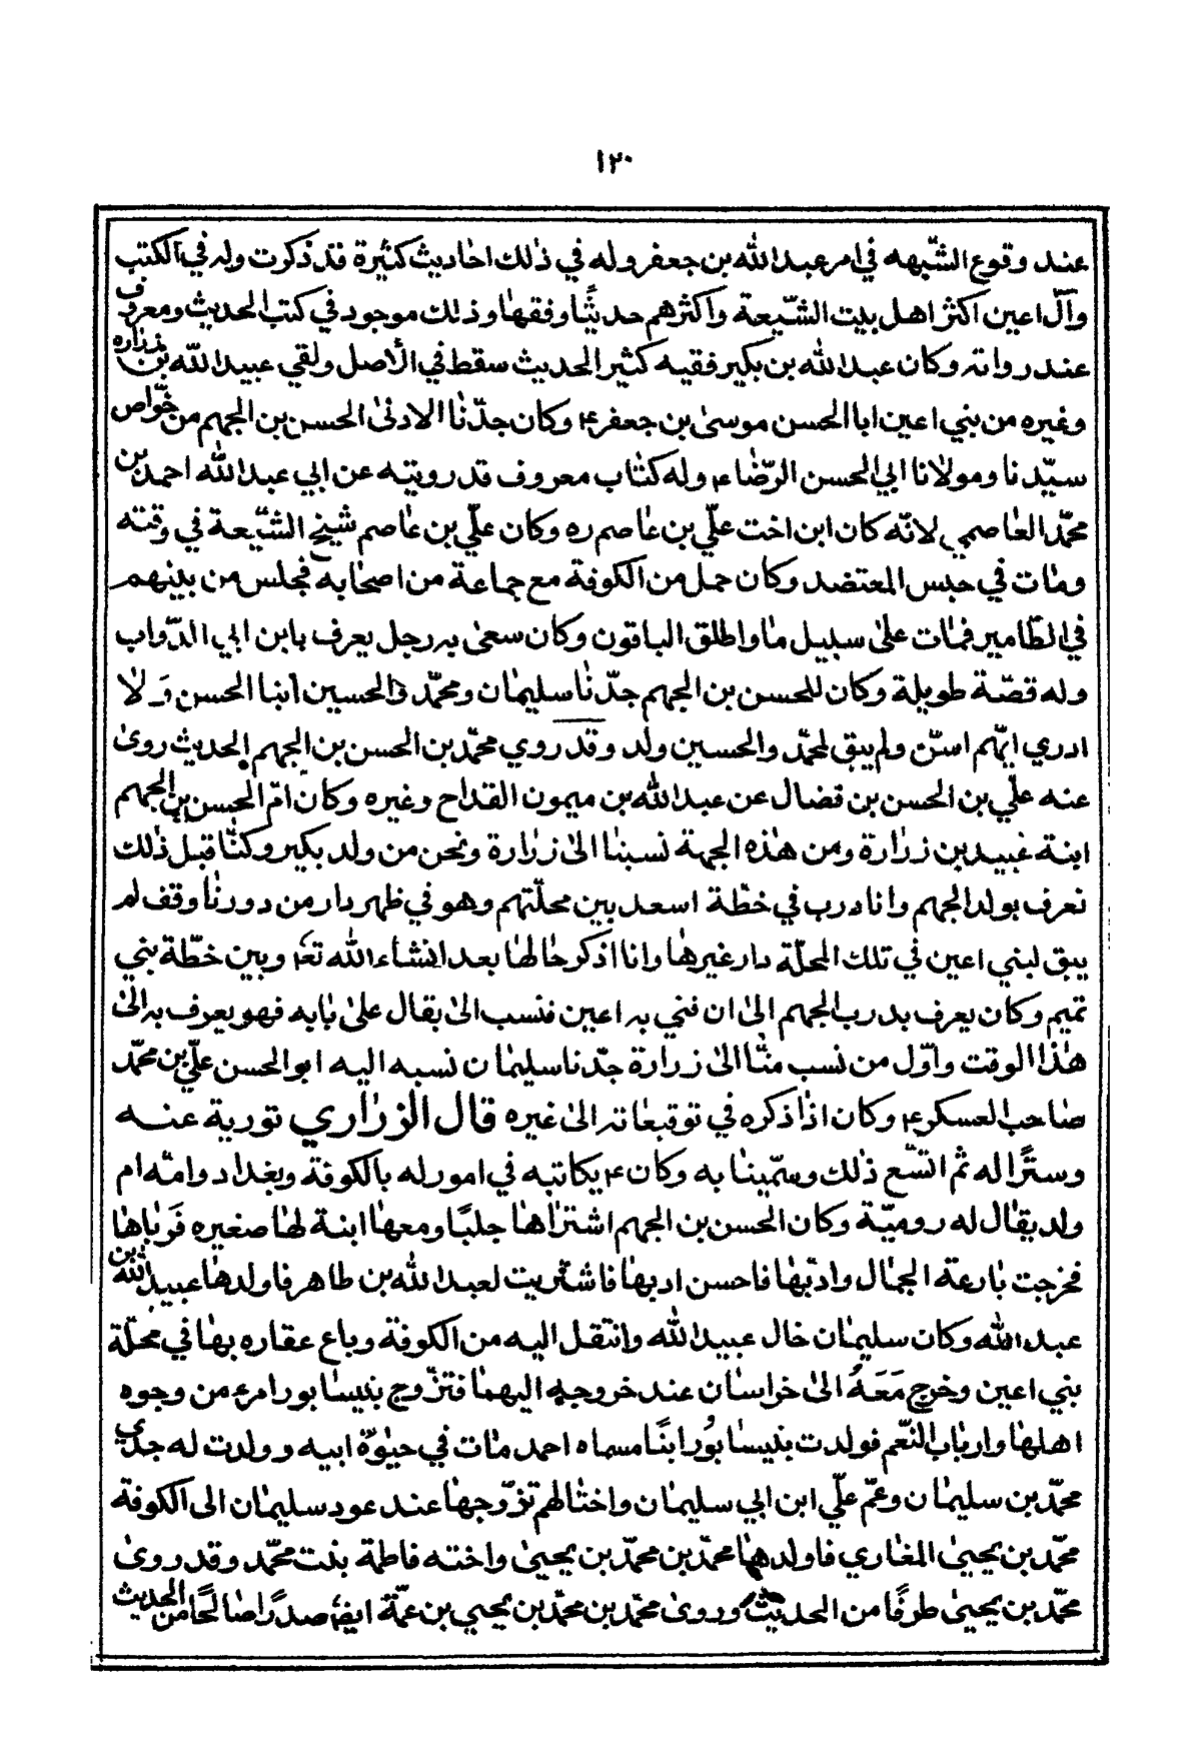 ١٢٠
عند وقوع الشّبهه في امر عبدالله بن جعفر وله في ذلك احاديث كثيرة قد ذكرت وله في الكتب
وآل اعين اكثر اهل بيت الشّيعة واكثرهم حديثًا وفقها وذلك موجود في كتب الحديث ومعروف
عند رواته وكان عبدالله بن بكير فقيه كثير الحديث سقط في الاصل ولقي عبيدالله بن زراره
وغيره من بني اعين ابا الحسن موسى بن جعفر ع وكان جدّنا الادنى الحسن بن الجهم من خوّاص
سيّدنا ومولانا ابي الحسن الرّضاء ع وله كتاب معروف قد رويته عن ابي عبدالله احمد بن
محمّد العاصمي لانّه كان ابن اخت علّي بن عاصم ره وكان علّي بن عاصم شيخ الشّيعة في وقته
ومات في حبس المعتضد وكان حمل من الكوفة مع جماعة من اصحابه فجلس من بينهم
في الطّامير فمات على سبيل ماواطلق الباقون وكان سعى به رجل يعرف بابن ابي الدّواب
وله قصّة طويلة وكان للحسن بن الجهم جدّنا سليمان ومحمّد والحسين أبنا الحسن وَ لا
ادري ايّهم اسنّ ولم يبق لمحمّد والحسين ولد وقد روي محمّد بن الحسن بن الجهم الحديث روى
عنه علّي بن الحسن بن فضال عن عبدالله بن ميمون القداح وغيره وكان امّ الحسن بن الجهم
ابنة عبيد بن زرارة ومن هذه الجهة نسبنا الى زرارة ونحن من ولد بكير وكنّا قبل ذلك
نعرف بولد الجهم وانا درب في خطّة اسعد بين محلّتهم وهو في ظهر دار من دورنا وقف لم
يبق لبني اعين في تلك المحلّة دار غيرها وانا اذكر حالها بعد انشاء الله تع وبين خطّة بني
تميم وكان يعرف بدرب الجهم الى ان نمي به اعين فنسب الى بقال على بابه فهو يعرف به الى
هذا الوقت واوّل من نسب منّا الى زرارة جدّنا سليمان نسبه اليه ابوالحسن علّي بن محمّد
صاحب العسكر ع وكان اذا ذكره في توقيعاته الى غيره قال الزراري تورية عنه
وسترًا له ثم اتّسع ذلك وسمّينا به وكان ع يكاتبه في امور له بالكوفة وبغداد وامّه ام
ولد يقال له روميّة وكان الحسن بن الجهم اشتراها جلبًا ومعها ابنة لها صغيره فَرباها
فخرجت بارعة الجمال وادّبها فاحسن ادبها فاشتريت لعبدالله بن طاهر فاولدها عبيدالله بن
عبدالله وكان سليمان خال عبيدالله وانتقل اليه من الكوفة وباع عقاره بها في محلّة
بني اعين وخرج مَعَهُ الى خراسان عند خروجه اليهما فتزّوج بنيسابور امرء من وجوه
اهلها وارباب النّعم فولدت بنيسابوُر ابنًا مسماه احمد مات في حيوة ابيه وولدت له جدّي
محمّد بن سليمان وعمّ علّي ابن ابي سليمان واختا لهم تزّوجها عند عود سليمان الى الكوفة
محمّد بن يحيى المغاري فاولدها محمّد بن محمّد بن يحيى واخته فاطمة بنت محمّد وقد روى
محمّد بن يحيى طرفًا من الحديث وروى محمّد بن محمّد بن يحيي بن عمّة ايضا صدرًا صالحًا من الحديث